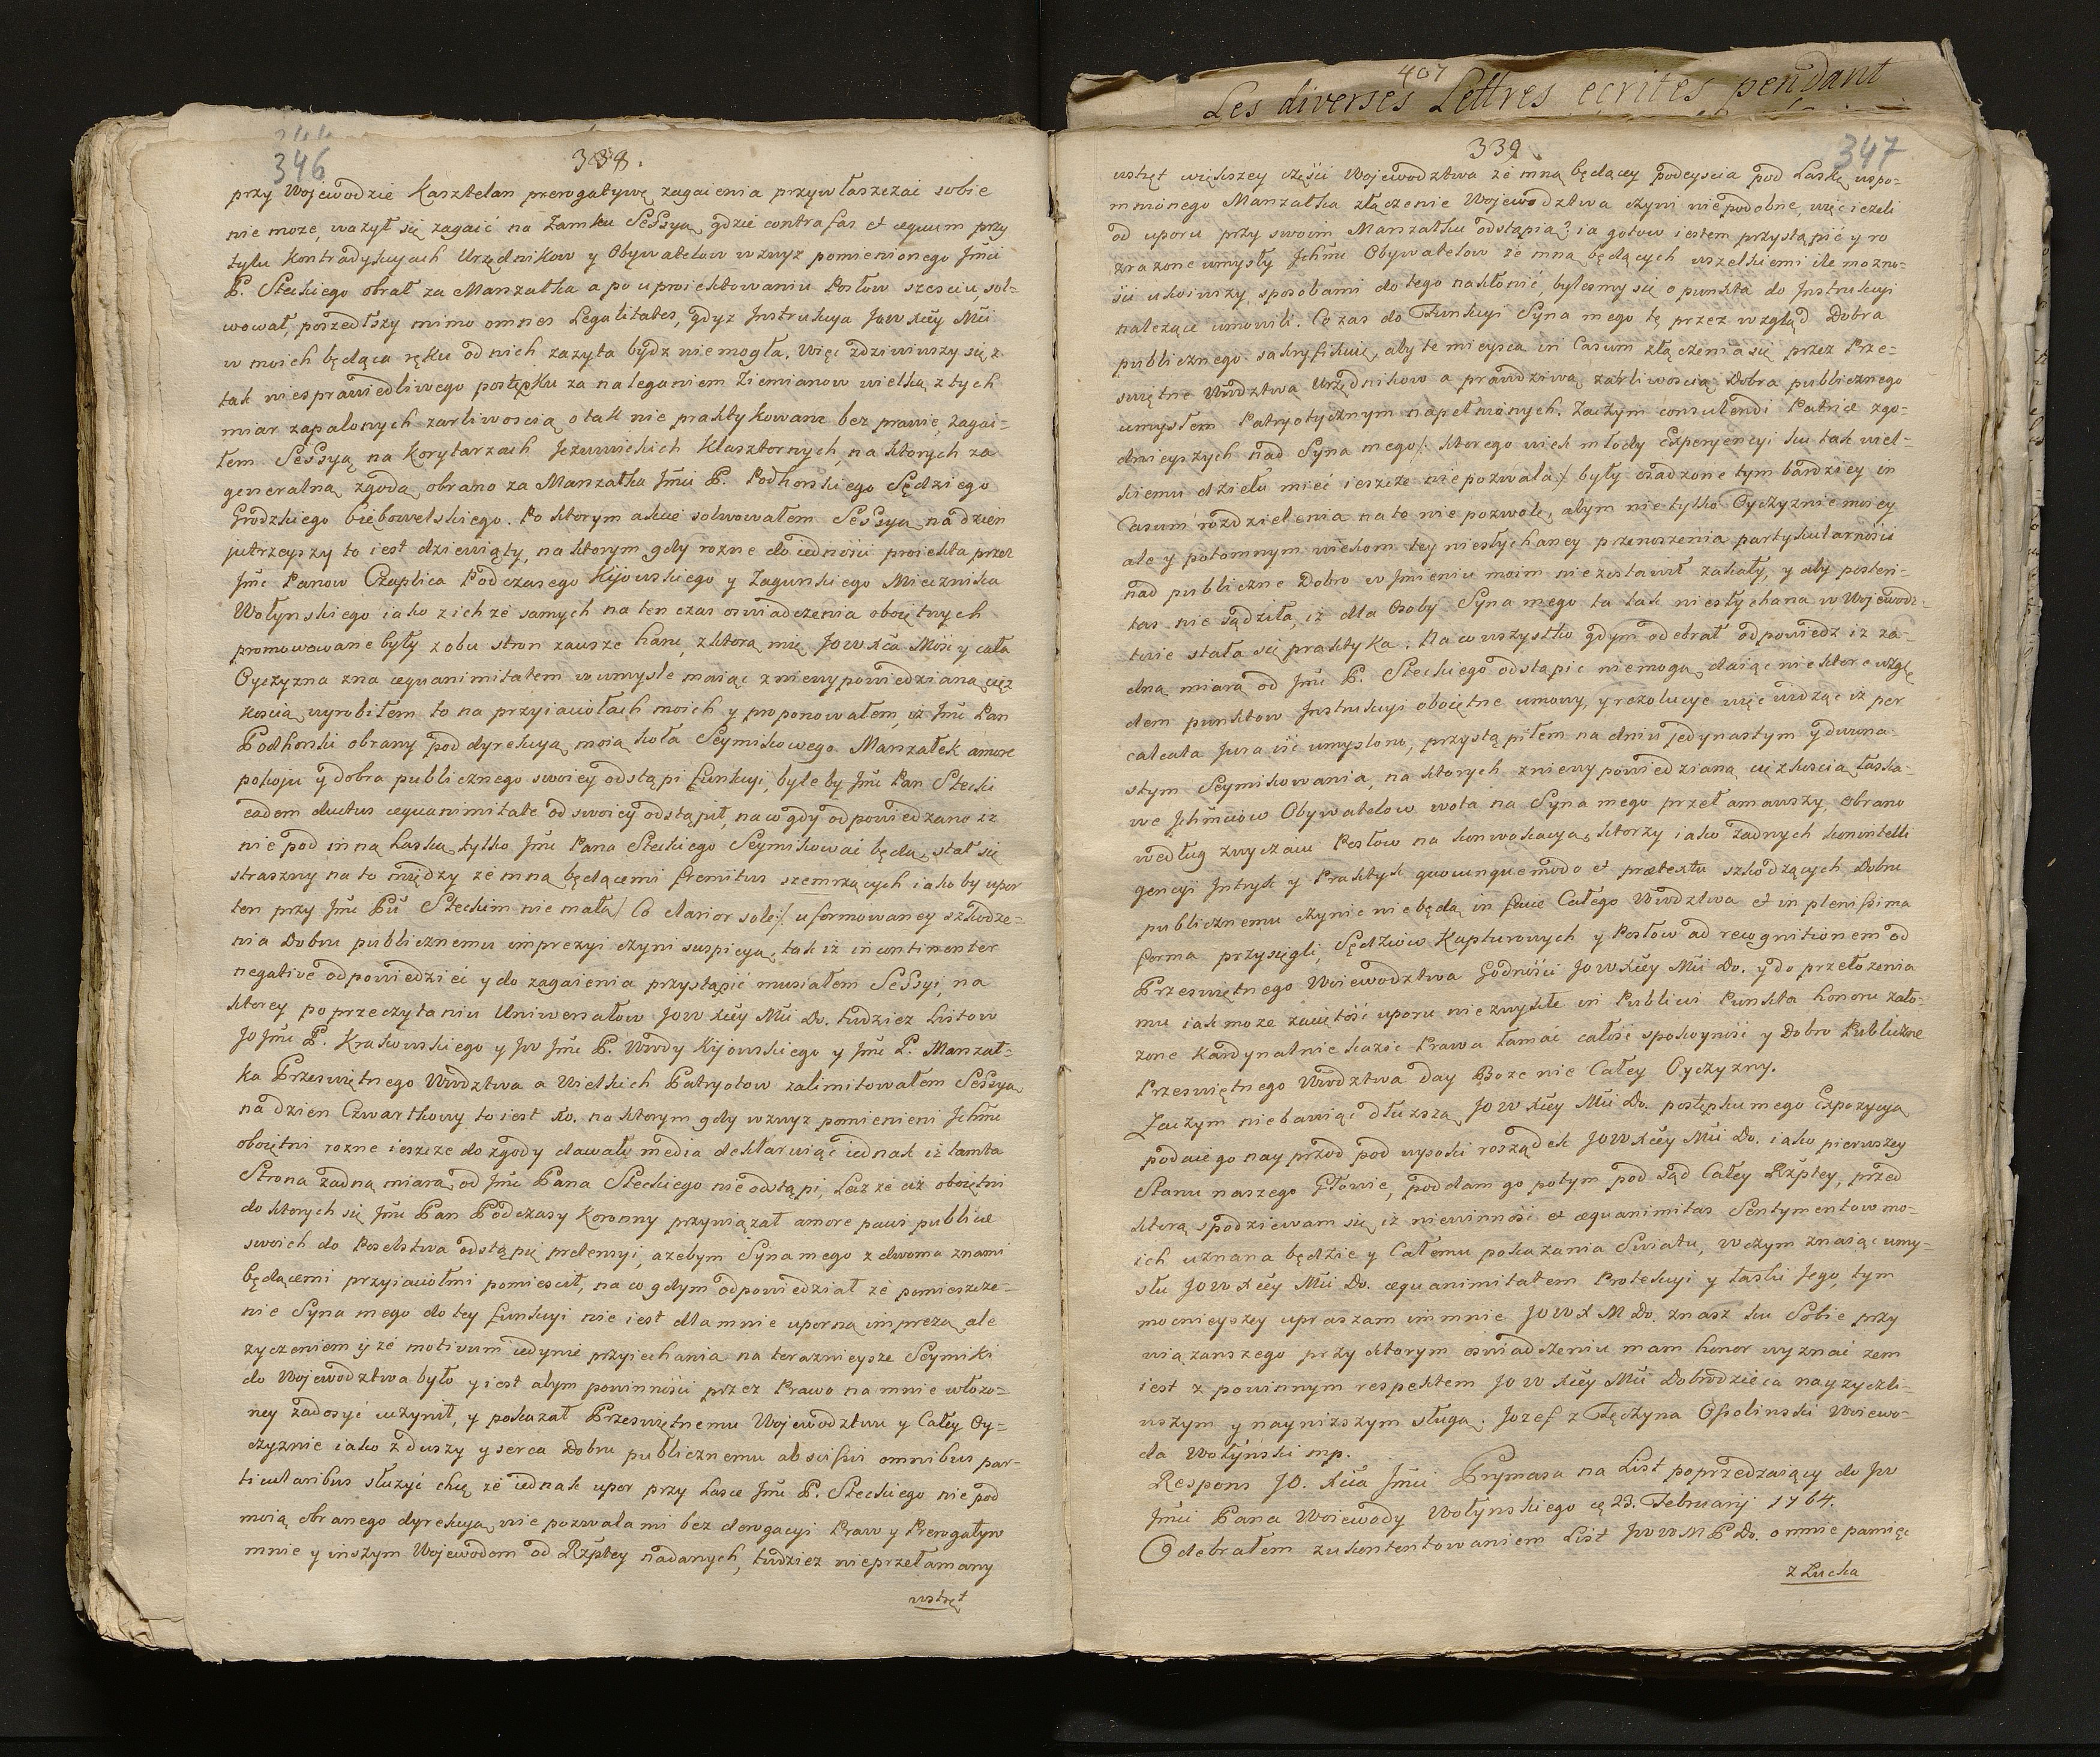 346
338.
przy Wojewodzie Kasztelan prerogatywę zagaienia przywłaszczać sobie
nie moze, wazył się zagaić na Zamku Sessyą, gdzie contra fas et æquum przy
tylu Kontradykcyach Urzędnikow y Obywatelow wzwyz pomienionego Jmci
P. Steckiego obrał za Marszałka a po uproiektowaniu Posłow szesciu, sol-
wował, poszedłszy mimo omnes Legalitates, gdyz Instrukcya JOWXcey Mci
w moich będąca ręku od nich zazyta bydz niemogła. Więc zdziwiwszy się z
tak niesprawiedliwego postępku za naleganiem Ziemianow wielką z tych
miar zapalonych zarliwoscią o tak nie praktykowane bez prawie, zagai-
łem Sessyą na Korytarzach Jezuwickich Klasztornych, na ktorych za
generalną zgodą obrano za Marszałka Jmci P. Podhorskiego Sędziego
Grodzkiego . Po ktorym akcie solwowałem Sessyą na dzien
jutrzeyszy to iest dziewiąty, na ktorym gdy rozne do iednosci proiekta przez
Jmc Panow Czaplica Podczasego Kijowskiego y Zagurskiego Miecznika
Wołynskiego iako z ich ze samych na ten czas oswiadczenia oboiętnych
promowowane były z obu stron zawsze hanc, z ktorą mię JOWXca Mosc y cała
Oyczyzna zna æquanimitatem w umysle maiąc z niewypowiedzianą cięz
koscią wyrobiłem to na przyiaciołach moich y proponowałem, iz Jmc Pan
Podhorski obrany pod dyrekcyą moią koła Seymikowego Marszałek amore
pokoju y dobra publicznego swoiey odstąpi funkcyi, byle by Jmc Pan Stecki
eadem ductus æquanimitate od swoicy odstąpił, na co gdy odpowiedzano iz
nie pod inną Laską, tylko Jmc Pana Steckiego Seymikować będą, stał się
straszny na to między ze mną będącemi fremitus szemrzących iakoby upor
ten przy Jmc Pu Steckim nie małą /: Co clarior sole :/ uformowaney szkodze-
nia Dobru publicznemu imprezyi czyni suspicyą, tak iz incontinenter
negative odpowiedzieć y do zagaienia przystąpić musiałem Sessyi, na
ktorey po przeczytaniu Uniwersałow JOWXcey Mci Do. tudziez Listow
JO Jmc P. Krakowskiego y JW Jmc P. Wwdy Kijowskiego y Jmc P. Marszał-
ka Przeswiętnego Wwdztwa a Wielkich Patryotow zalimitowałem Sessyą
na dzien Czwartkowy to iest 10. na ktorym gdy wzwyz pomienieni Jchmc
oboiętni rozne ieszcze do zgody dawali media deklaruiąc iednak iz tamta
Strona zadną miarą od Jmc Pana Steckiego nie odstąpi, Lecz ze ciz oboiętni
do ktorych się Jmc Pan Podczaszy Koronny przywiązał amore pacis publicæ
swoich do Poselstwa odstąpią pretensyi, azebym Syna mego z dwoma z nami
będącemi przyiaciołmi pomiescił, na co gdym odpowiedział ze pomieszcze-
nie Syna mego do tey funkcyi nie iest dla mnie uporną imprezą, ale
zyczeniem y ze motivum iedynie przyiechania na teraznieysze Seymiki
do Wojewodztwa było y iest abym powinnosci przez Prawo na mnie włozo-
ney zadosyć uczynił, y pokazał Przeswiętnemu Wojewodztwu y Całey Oy-
czyznie iako z duszy y serca Dobru publicznemu abscissis omnibus par-
ticularibus słuzyć chcę ze iednak upor przy Lasce Jmc P. Steckiego nie pod
moią obranego dyrekcyą, nie pozwala mi bez derogacyi Praw y Prerogatyw
mnie y inszym Wojewodom od Rzpltey nadanych, tudziez nieprzełamany
wstręt
407
Les diverses Lettres ecrites pendant
339
347
wstręt większey częsci Wojewodztwa ze mną będącey podeyscia pod Laskę wspo-
mnionego Marszałka złączenie Wojewodztwa czyni niepodobne, więc ieżeli
od uporu przy swoim Marszałku odstąpią, ia gotow iestem przystąpić y ro
zrazone umysły Jchmc Obywatelow ze mną będących wszelkiemi ile mozno-
sci ukoiwszy sposobami do tego nakłonić, bylesmy się o punkta do Instrukcyi
nalezące umowili. Co zas do Funkcyi Syna mego tę przez wzgląd Dobra
publicznego sakryfikuię, aby te mieysca in Casum złączenia się przez Prze-
swiętne Wwdztwa Urzędnikow a prawdziwą zarliwoscią Dobra publicznego
umysłem Patryotycznym napełnionych. Zaczym consulendi Patriæ zgo-
dnieyszych nad Syna mego /: ktorego wiek młody Experyencyi ku tak wiel-
kiemu dziełu mieć ieszcze nie pozwala :/ były osadzone tym bardziey in
Casum rozdzielenia na to nie pozwolę, abym nie tylko Oyczyznie moiey
ale y potomnym wiekom tey niesłychaney przenoszenia partykularnosci
nad publiczne Dobro w Imieniu moim nie zostawił zakały, y aby posteri-
tas nie sądziła, iz dla Osoby Syna mego ta tak niesłychana w Wojewodz-
twie stała się praktyka. Na co wszystko gdym odebrał odpowiedz iz za-
dną miarą od Jmc P. Steckiego odstąpic niemogą, daiąc niektore wzglę
dem punktow Instrukcyi oboiętne umowy, y rezolucye więc widząc iz per
calcata Jura isc umyslono, przystąpiłem na dniu jedynastym y dwuna-
stym Seymikowania, na ktorych z niewypowiedzianą cięzkoscią łaska-
we Jchmciow Obywatelow wota na Syna mego przełamawszy, obrano
według zwyczaiu Posłow na konwokacyą, ktorzy iako zadnych konintelli
gencyi Intryk y Praktyk quocunque modo et prætextu szkodzących Dobru
publicznemu czynic nie będą in facie Całego Wwdztwa et in plenissima
forma przysięgli, Sędziow Kapturowych y Posłow ad recognitionem od
Przeswiętnego Woiewodztwa Godnosci JOWXcey Mci Do. y do przełozenia
mu iak moze zaciętosc uporu niezwykłe in Publicis Punkta honoru zało-
zone Kardynalnie kazic Prawa łamać całosc spokoynosc y Dobro Publiczne
Przeswiętnego Wwdztwa day Boze nie Całey Oyczyzny.
Zaczym niebawiąc dłuzszą JOWXcey Mci Do. postępku mego Expozycyą
podaię go nay przod pod wysoki rosządek JOWXcey Mci Do. iako pierwszey
Stanu naszego Głowie, poddam go potym pod sąd Całey Rzpltey, przed
ktorą spodziewam się iz niewinnosc et æquanimitas Sentymentow mo-
ich uznana będzie y Całemu pokazania Swiatu, w czym znaiąc umy-
słu JOWXcey Mci Do. æquanimitatem Protekcyi y łaski Jego, tym
mocnieyszey upraszam im mnie JOWXM Do. znasz ku Sobie przy
wiązanszego przy ktorym oswiadczeniu mam honor wyznać zem
iest z powinnym respektem JOWXcey Mci Dobrodzieia nayzyczli-
wszym y nayniższym sługą. Jozef z Tęczyna Ossolinski Woiewo-
da Wołynski mp.
Respons JO. Xcia Jmci Prymasa na List poprzedzaiący do JW
Jmci Pana Woiewody Wołynskiego 23. Februarij 1764.
Odebrałem z ukontentowaniem List JWWM P Do. o mnie pamięc
z Lucka